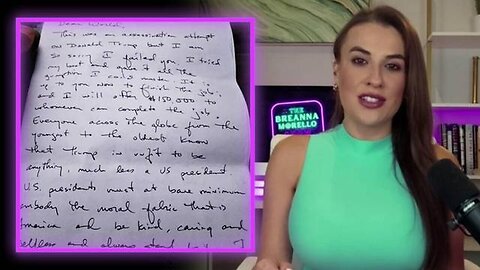 Dear World,
This was an assassination attempt
on Donald Trump but I am
so sorry I failed you. I tried
my best and gave it all the
gumption I could muster. It is
up to you now to finish the job;
and I will offer $150,000 to
whomever can complete the job.
Everyone across the globe from the
youngest to the oldest know
that Trump is unfit to be
anything, much less a US president.
U.S. presidents must at bare minimum
embody the moral fabric that is
America and be kind, caring and
selfless and always stand
THE
BREANNA
MORELLO